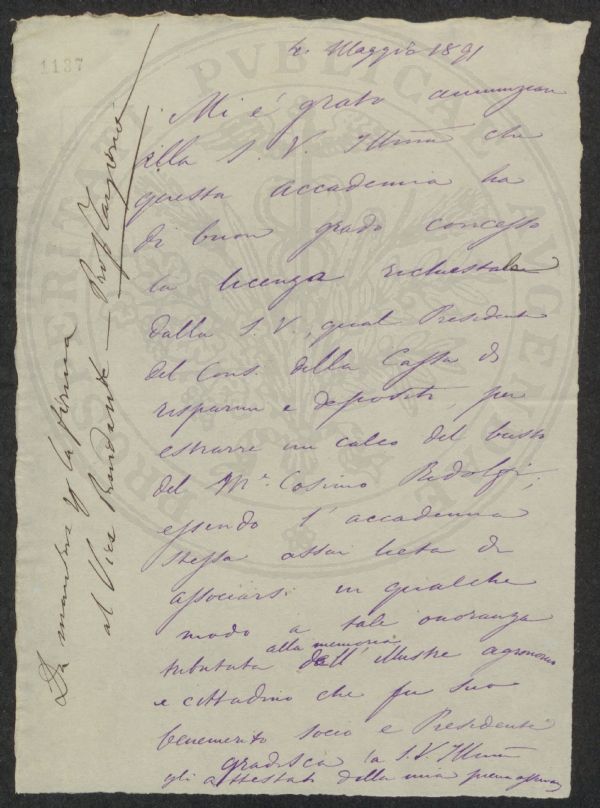 1137
2. Maggio 1891
Mi è grato annunziare
alla S. V. Illma che
questa accademia ha
di buon grado concesso
la licenza richiestale
dalla S. V., qual Presidente
del Cons. della Cassa di
risparmi e depositi, per
estrarre un calco del busto
del Me. Cosimo Ridolfi,
essendo l'accademia
stessa assai lieta di
associarsi in qualche
modo a tale onoranza
tributata alla memoria dell'illustre agronomo
e cittadino che fu suo
benemerito socio e Presidente
gradisca la S. V. Illma
gli attestati della mia piena
Da mandare p la firma
al Vice Presidente — Prof.
PROSPERITATI PVBLICAE AVGENDAE